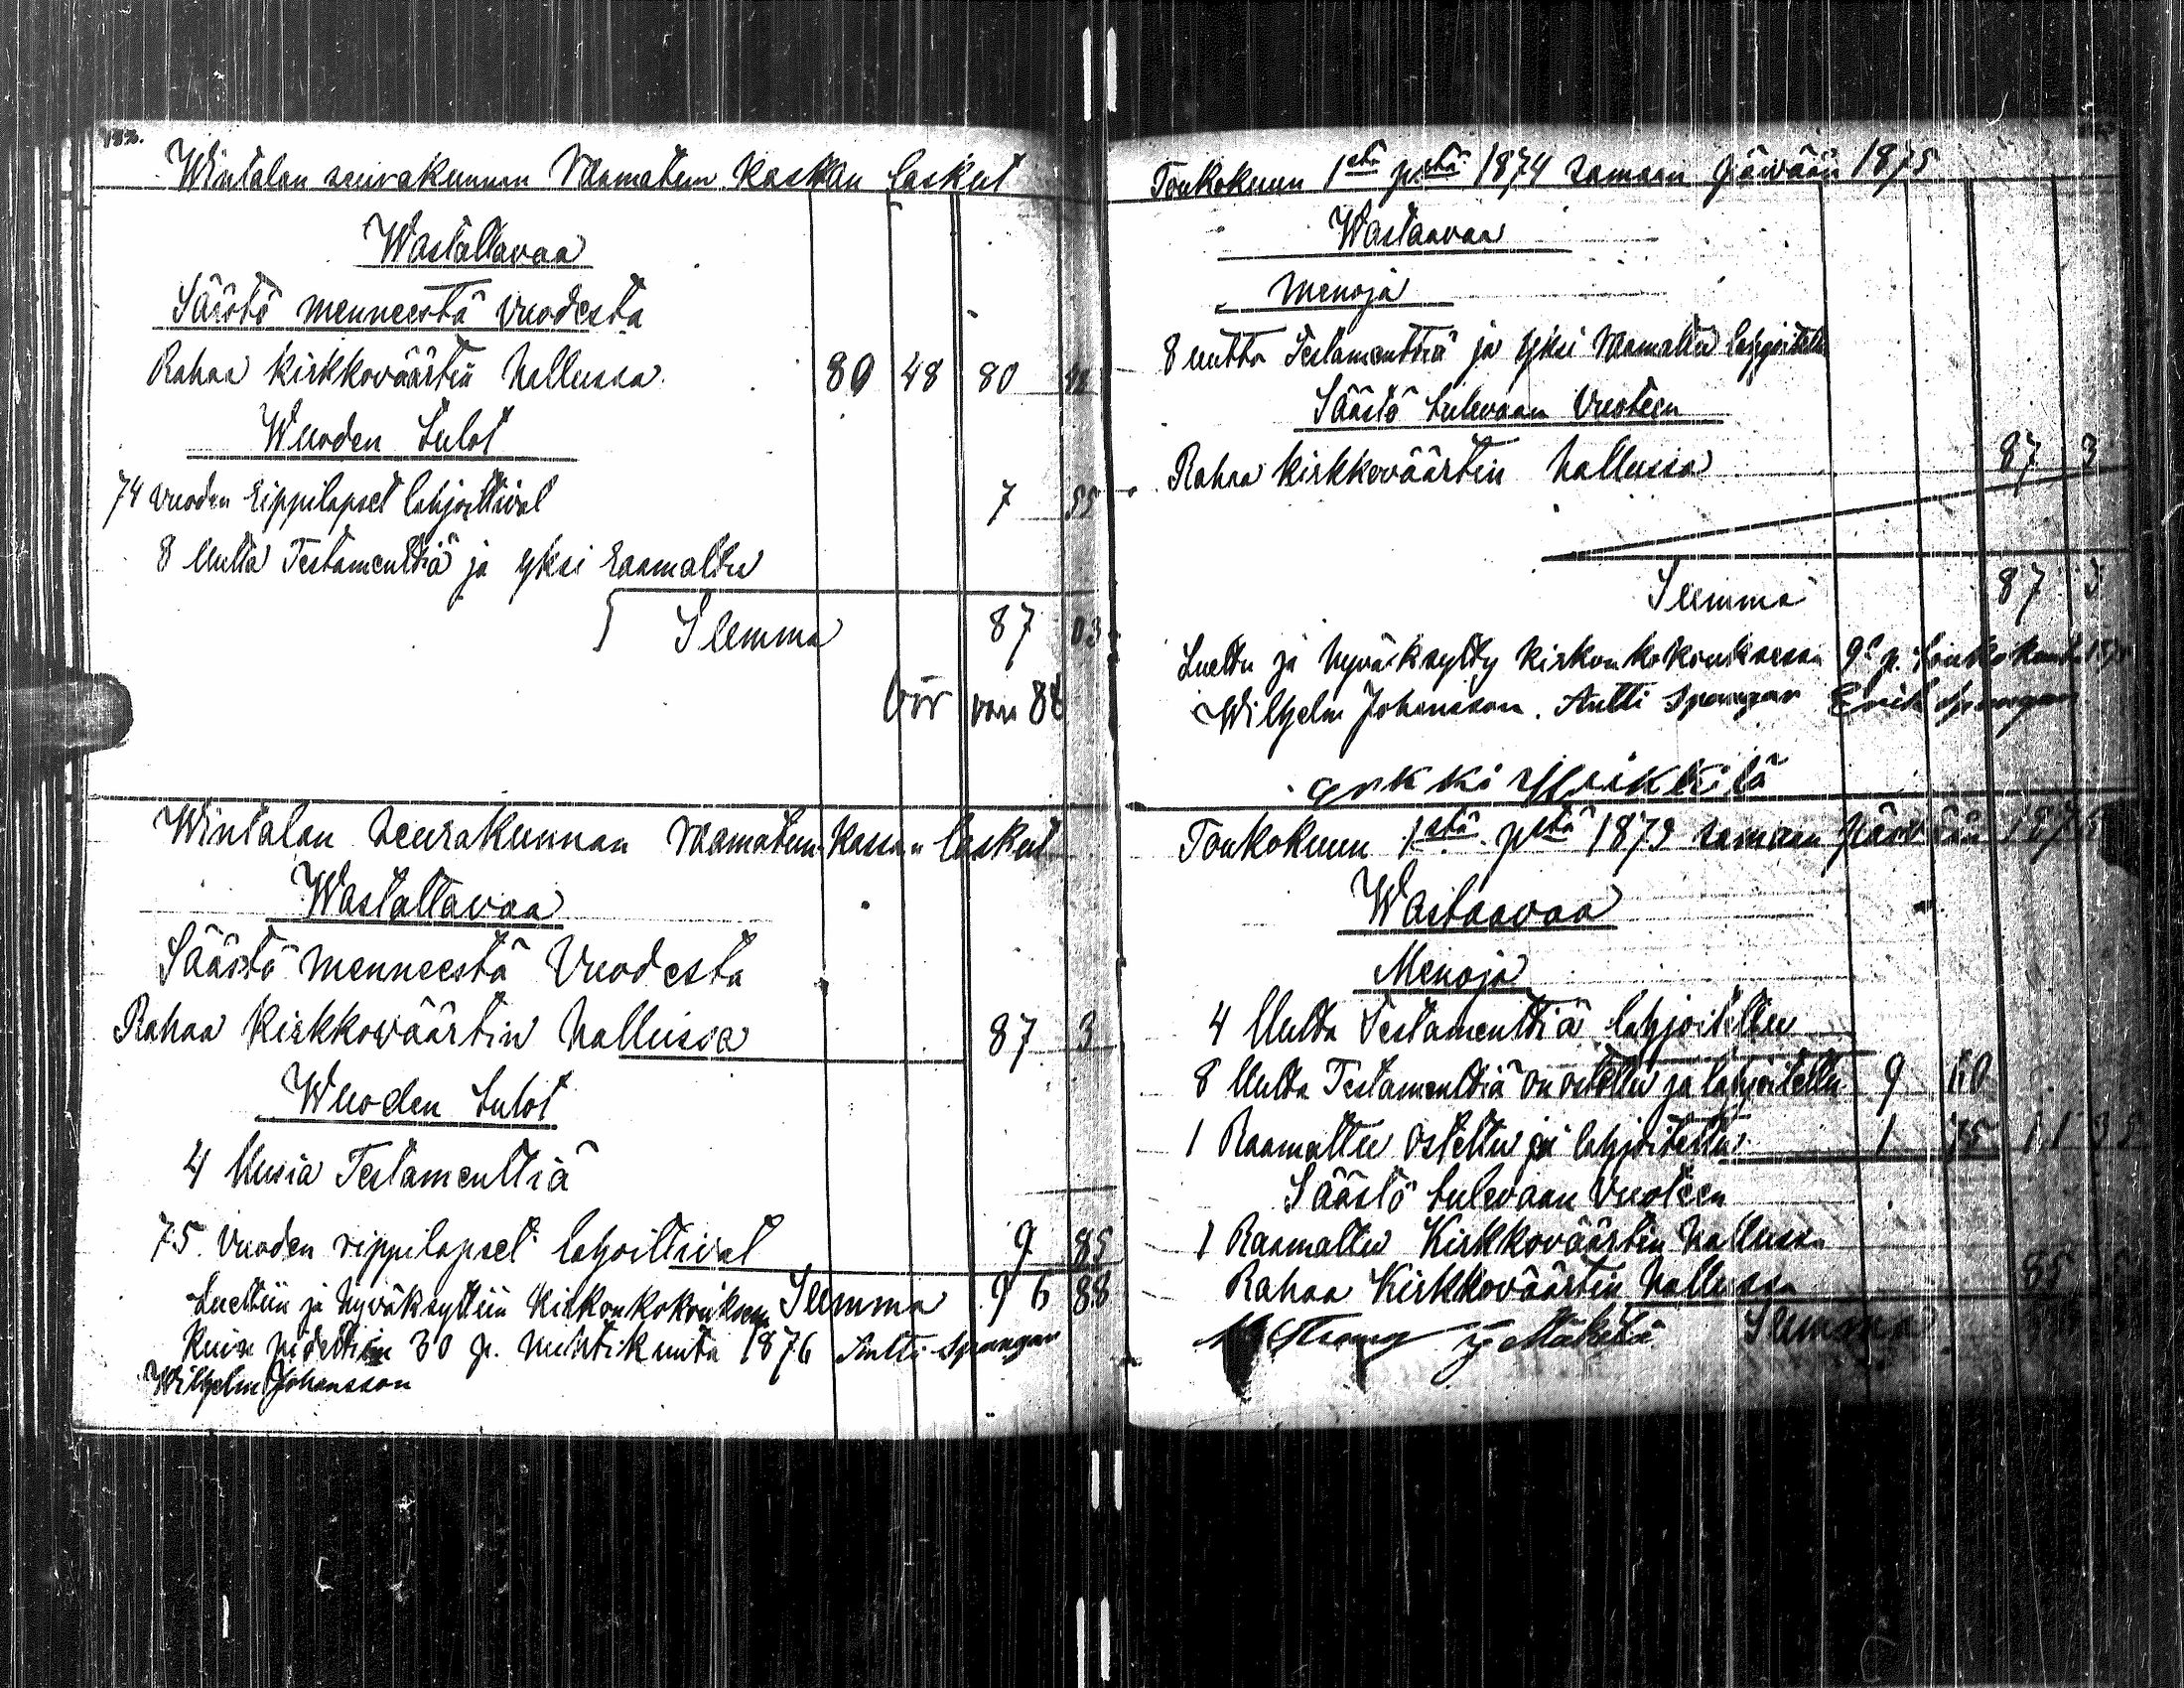 Wintalan seurakunnan Raamatun kassan laskut
Wastattavaa
Säästö menneestä vuodesta
Rahaa kirkkoväärtin hallussa 80 48 80 48
Wuoden tulot
74 vuoden rippilapset lahjoittivat 7 55
8 Uutta Testamenttiä ja yksi raamattu
Summa 87 03
Wintalan seurakunnan Raamatun kassan laskut
Wastattavaa
Säästö menneestä Vuodesta
Rahaa Kirkkoväärtin hallussa 87 3
Wuoden tulot
4 Uusia Testamenttiä
75 vuoden rippilapset lahjoittivat 9 85
Luettiin ja hyväksyttiin Kirkonkokouksessa Summa 96 88
kuin pidettiin 30 p. huhtikuuta 1876 Antti Spangar
Wilhelm Johansson
Toukokuun 1stä p:stä 1874 samaan päivään 1875
Wastaavaa
Menoja
8 uutta Testamenttiä ja yksi Raamattu lahjoitettu
Säästö tulevaan Vuoteen
Rahaa kirkkoväärtin hallussa 87 3
Summa 87 3
Luettu ja hyväksytty kirkonkokouksessa 9 p. toukokuuta
Wilhelm Johansson. Antti Spangar Erik Spangar
Toukokuun 1stä pstä 1875 samaan päivään 1876
Wastaavaa
Menoja
4 Uutta Testamenttiä lahjoitettu
8 Uutta Testamenttiä on ostettu ja lahjoitettu 9 60
1 Raamattu ostettu ja lahjoitettu 1 75 11 35
Säästö tulevaan Vuoteen
1 Raamattu Kirkkoväärtin hallussa
Rahaa Kirkkoväärtin hallussa 85
Summa